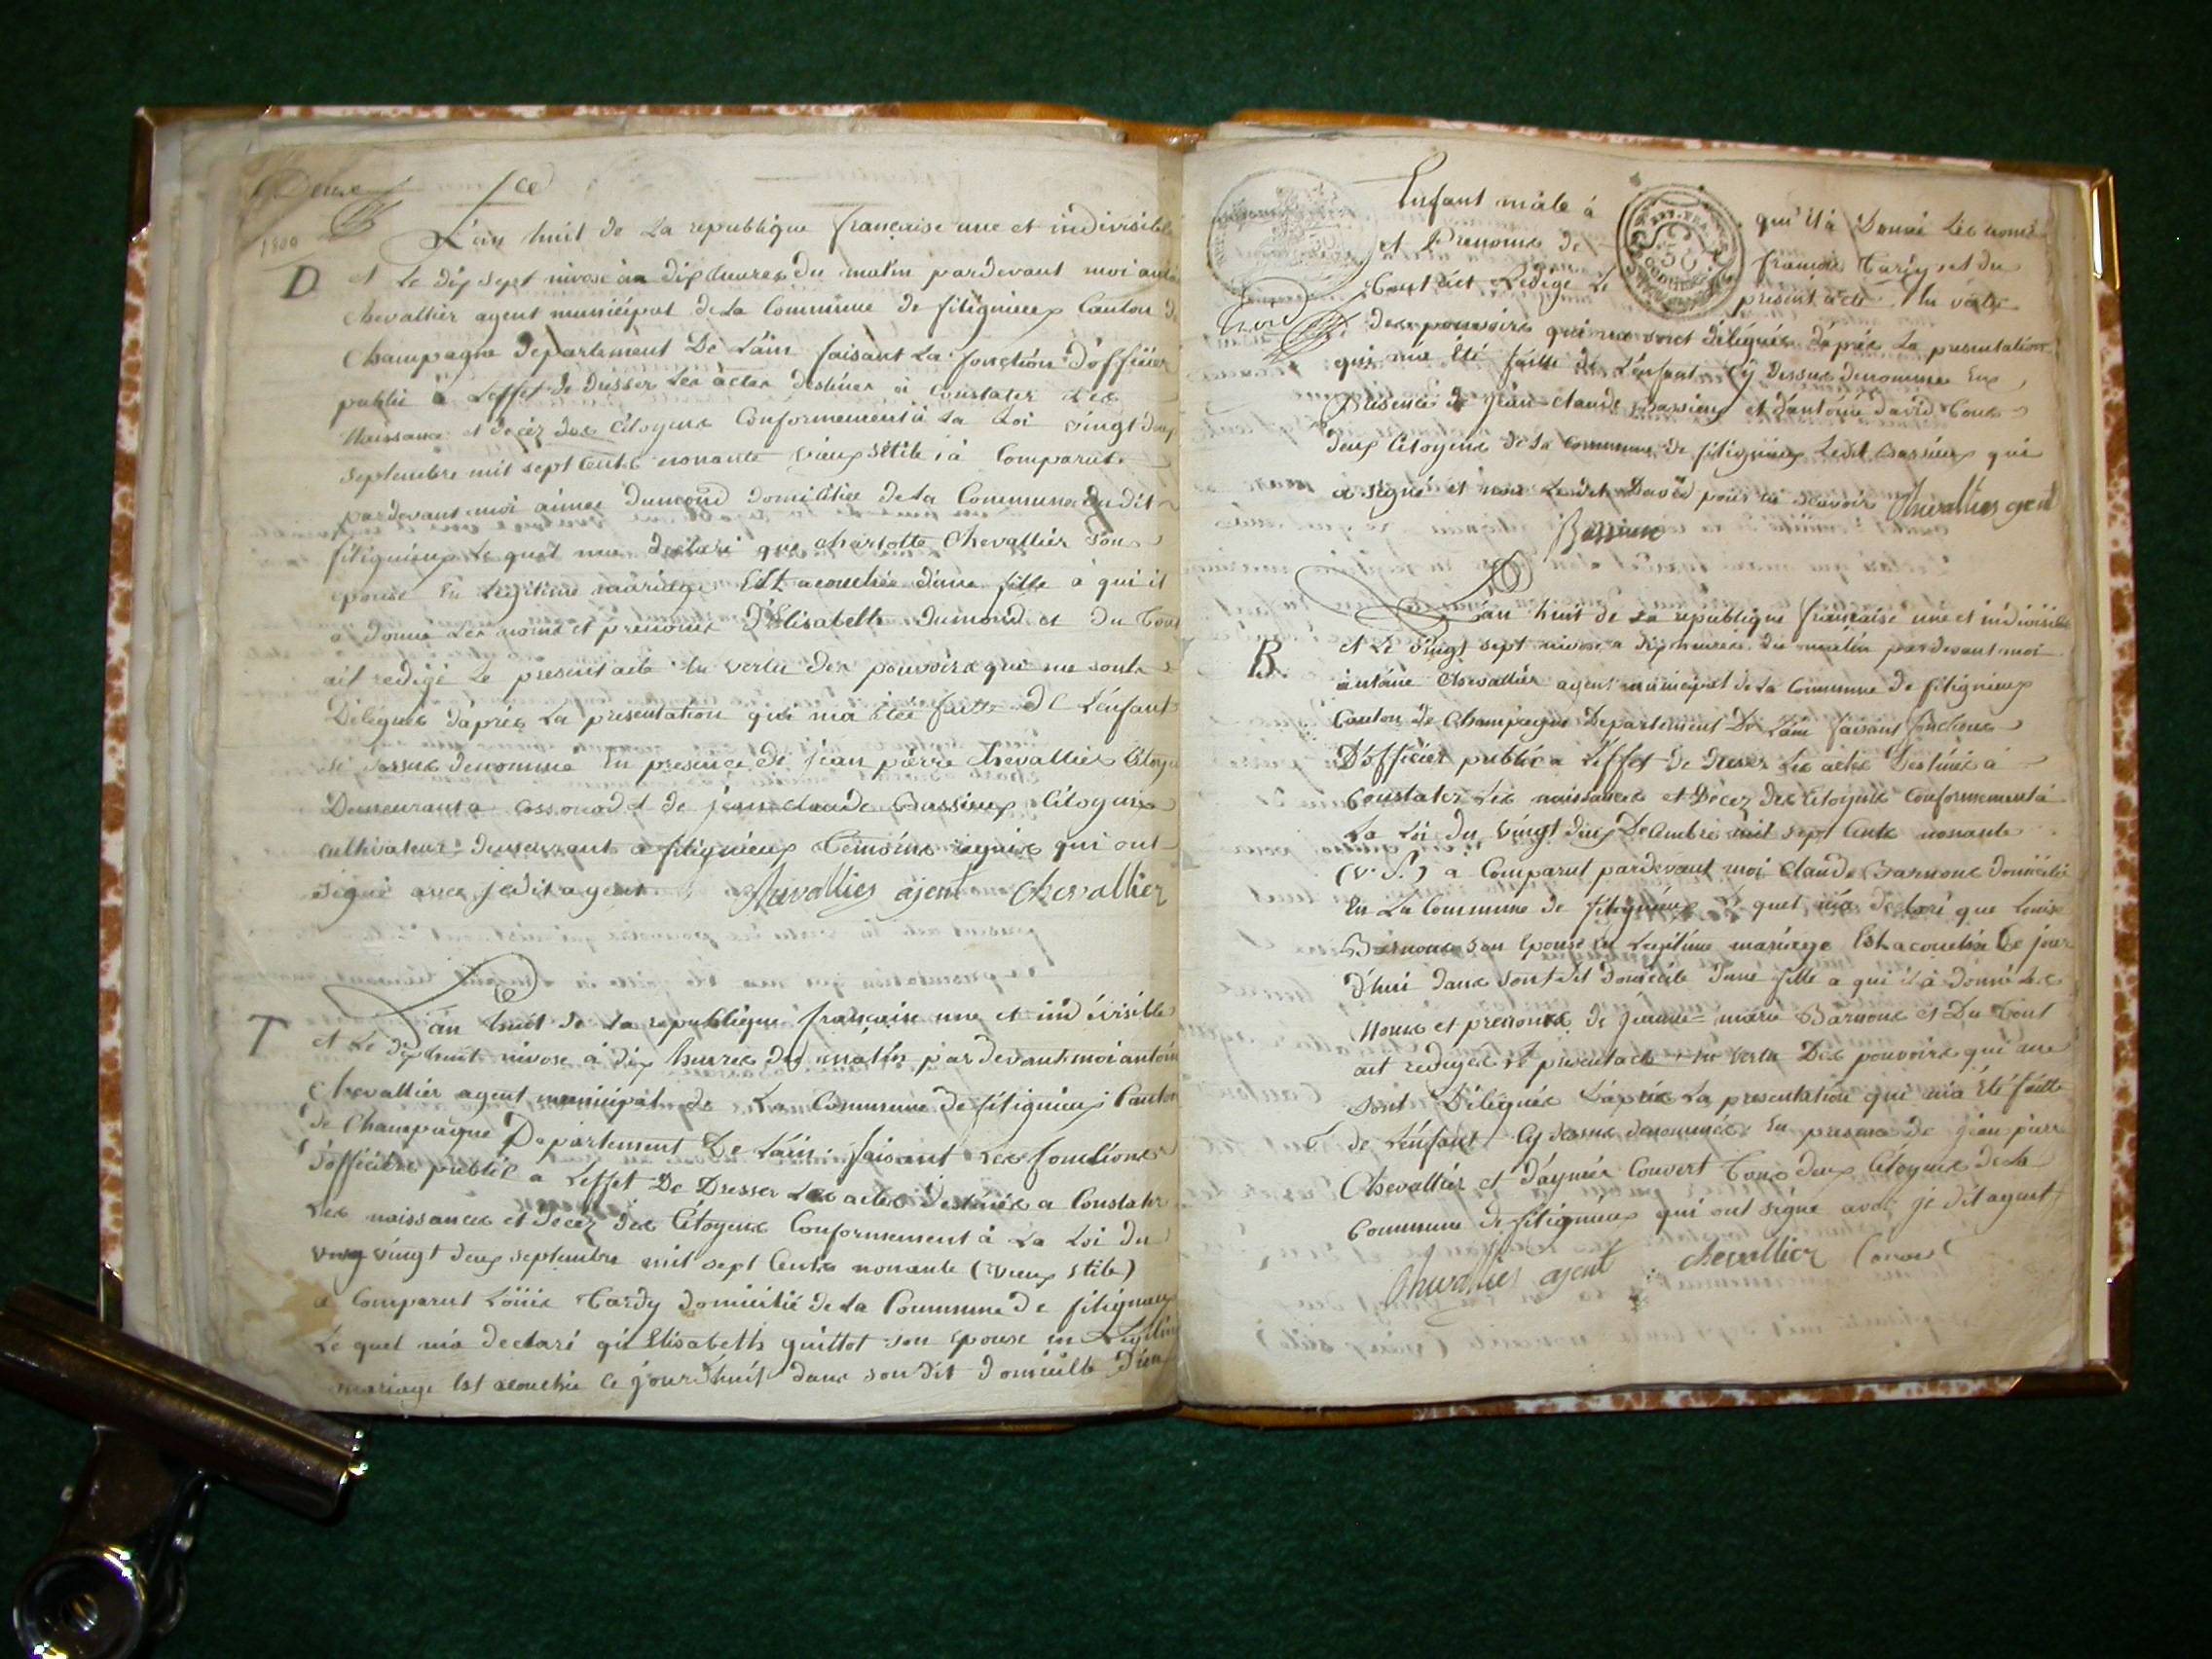 Deux
1800
L'an huit de La republique française une et indivisible
D
et le dix sept nivose àa dix heures du matin pardevant moi antoi
chevallier agent municipal de la Commune de fitignieux Canton de
Champagne Departement De L'ain faisant La fonction d'officier
public à L'effet de dresser Les actes destinés à Constater Les
Naissance et decéz des Citoyens Conformement à La Loi vingt deux
septembre mil sept Cents nonante vieux stile à Comparut
pardevant moi aimee dumond domiciliée de la Commune du dit
fitignieux Le quel ma declaré que charlotte Chevallier son
epouse En Legitime mariage Est acouchée d'une fille à qui il
a donné Les noms et prenoms d'Elisabeth dumond et du tout
ait redigé Le present acte En vertu des pouvoirs qui me sont
Délégués d'après La presentation qui ma étéé faitte de L'enfant
si dessus denommée En presence de jean pierre Chevallier Citoyen
Demeurant a et de jean claude Bassieux Citoyens
cultivateur demeurant a fitignieux temoins requis qui ont
signé avec jedit agent Chevallier ajent Chevallier
T
L'an huit de La republique française une et indivisible
et Le dix huit nivose à dix heures du matin par devant moi antoin
Chevallier agent municipal de La Commune de fitignieux Canton
de Champagne Departement De L'ain faisant Les fonctions
d'officier public a L'effet De Dresser Les actes destinés a Constater
Les naissances et decéz des Citoyens Conformement à La Loi du
vingt deux septembre mil sept Cents nonante (vieux stile)
a Comparut Loüis tardy domicilié de la Commune de fitignieux
Le quel m'a declaré qu'Elisabeth guillot son Epouse en Legitime
mariage Est acouchée Ce jourd'huit dans son dit domicille d'un
Enfant mâle à qui il à Donné Les noms
et Prenoms de francois tardy et du
tout ait Redigé Le present acte En vertu
des pouvoirs qui me sont délégués d'après La presentation
qui ma Été faitte de L'enfant Cy dessus denommé En
presence de jean claude Bassieux et d'antoine david tous
deux Citoyens de la Commune de fitignieux Ledit Bassieux qui
a signé et non Ledit David pour ne sçavoir Chevallier ajent
Bassieux
L'an huit de La republique française une et indivisible
B.
et Le vingt sept nivose a dix heures du matin pardevant moi
antoine Chevallier agent municipal de la Commune de fitignieux
Canton de Champagne Departement De L'ain faisant fonctions
D'officier public a L'effet de dresser Les actes Destinés à
Constater Les naissances et Decez des Citoyens Conformement à
La Loi du vingt deux Decembre mil sept Cents nonante
(v. S.) a Comparut pardevant moi Claude Barnoux domicilié
En La Commune de fitignieux Le quel m'a declaré que Louise
Barnoux son Epouse en Legitime mariage Est acouchée Ce jour
d'hui dans sont dit domicile d'une fille a qui il à donné Les
Noms et prenoms de jeanne=marie Barnoux et Du tout
ait redigée Le present acte En vertu Des pouvoirs qui me
sont Délégués D'après La presentation qui m'a Été faitte
de L'enfant Cy dessus denommée En presence de jean pierre
Chevallier et d'aymée Convert tous deux Citoyens de La
Commune de fitignieux qui ont signé avec je dit agent
Chevallier ajent chevallier